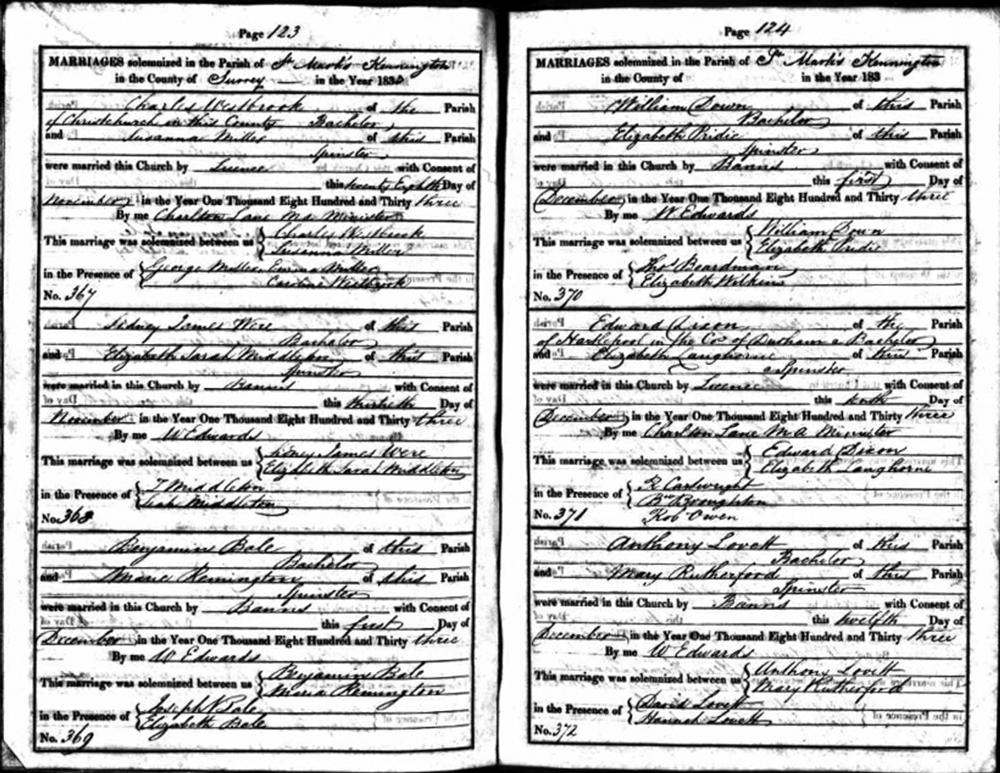 Page 123
MARRIAGES solemnized in the Parish of St Mark's Kennington
in the County of Surrey in the Year 1833
Charles Westbrook of the Parish
of Christchurch in this County Bachelor
and Susanna Miller of this Parish
Spinster
were married in this Church by Licence with Consent of
this twenty Eighth Day of
November in the Year One Thousand Eight Hundred and Thirty three
By me Charlton Lane M.A. Minister
This marriage was solemnized between us Charles Westbrook
Susanna Miller
in the Presence of George Miller Emma Miller
Caroline Westbrook
No. 367
Sidney James Were of this Parish
Bachelor
and Elizabeth Sarah Middleton of this Parish
Spinster
were married in this Church by Banns with Consent of
this thirtieth Day of
November in the Year One Thousand Eight Hundred and Thirty three
By me W Edwards
This marriage was solemnized between us Sidney James Were
Elizabeth Sarah Middleton
in the Presence of T Middleton
Leah Middleton
No. 368
Benjamin Bale of this Parish
Bachelor
and Maria Remington of this Parish
Spinster
were married in this Church by Banns with Consent of
this first Day of
December in the Year One Thousand Eight Hundred and Thirty three
By me W Edwards
This marriage was solemnized between us Benjamin Bale
Maria Remington
in the Presence of Joseph Bale
Elizabeth Bale
No. 369
Page 124
MARRIAGES solemnized in the Parish of St Mark's Kennington
in the County of in the Year 183
William Down of this Parish
Bachelor
and Elizabeth Pridie of this Parish
Spinster
were married in this Church by Banns with Consent of
this first Day of
December in the Year One Thousand Eight Hundred and Thirty three
By me W Edwards
This marriage was solemnized between us William Down
Elizabeth Pridie
in the Presence of Thos Boardman
Elizabeth Wilkins
No. 370
Edward Dixon of the Parish
of Hartlepool in the Co. of Durham a Bachelor
and Elizabeth Langhorne of this Parish
a Spinster
were married in this Church by Licence with Consent of
this tenth Day of
December in the Year One Thousand Eight Hundred and Thirty three
By me Charlton Lane M.A. Minister
This marriage was solemnized between us Edward Dixon
Elizabeth Langhorne
in the Presence of Cartwright
Broughton
Robt Owen
No. 371
Anthony Lovett of this Parish
Bachelor
and Mary Rutherford of this Parish
Spinster
were married in this Church by Banns with Consent of
this twelfth Day of
December in the Year One Thousand Eight Hundred and Thirty three
By me W Edwards
This marriage was solemnized between us Anthony Lovett
Mary Rutherford
in the Presence of David Lovett
Hannah Lovett
No. 372